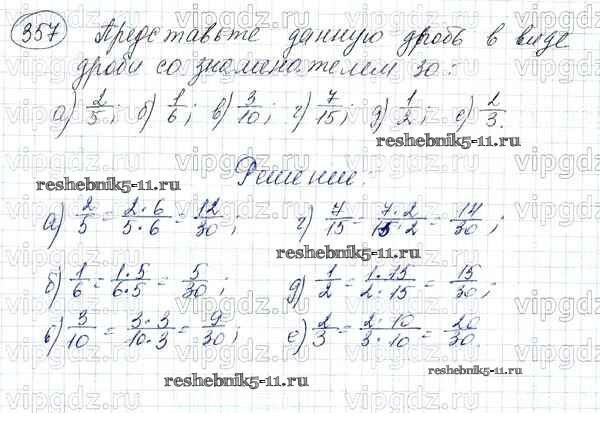 357 Представьте данную дробь в виде
дроби со знаменателем 30:
а) 2/5; б) 1/6; в) 3/10; г) 7/15; д) 1/2; е) 2/3.
Решение:
reshebnik5-11.ru
reshebnik5-11.ru
а) 2/5 = 2·6/5·6 = 12/30; г) 7/15 = 7·2/15·2 = 14/30;
reshebnik5-11.ru
б) 1/6 = 1·5/6·5 = 5/30; д) 1/2 = 1·15/2·15 = 15/30;
в) 3/10 = 3·3/10·3 = 9/30; е) 2/3 = 2·10/3·10 = 20/30.
reshebnik5-11.ru
reshebnik5-11.ru
vipgdz.ru